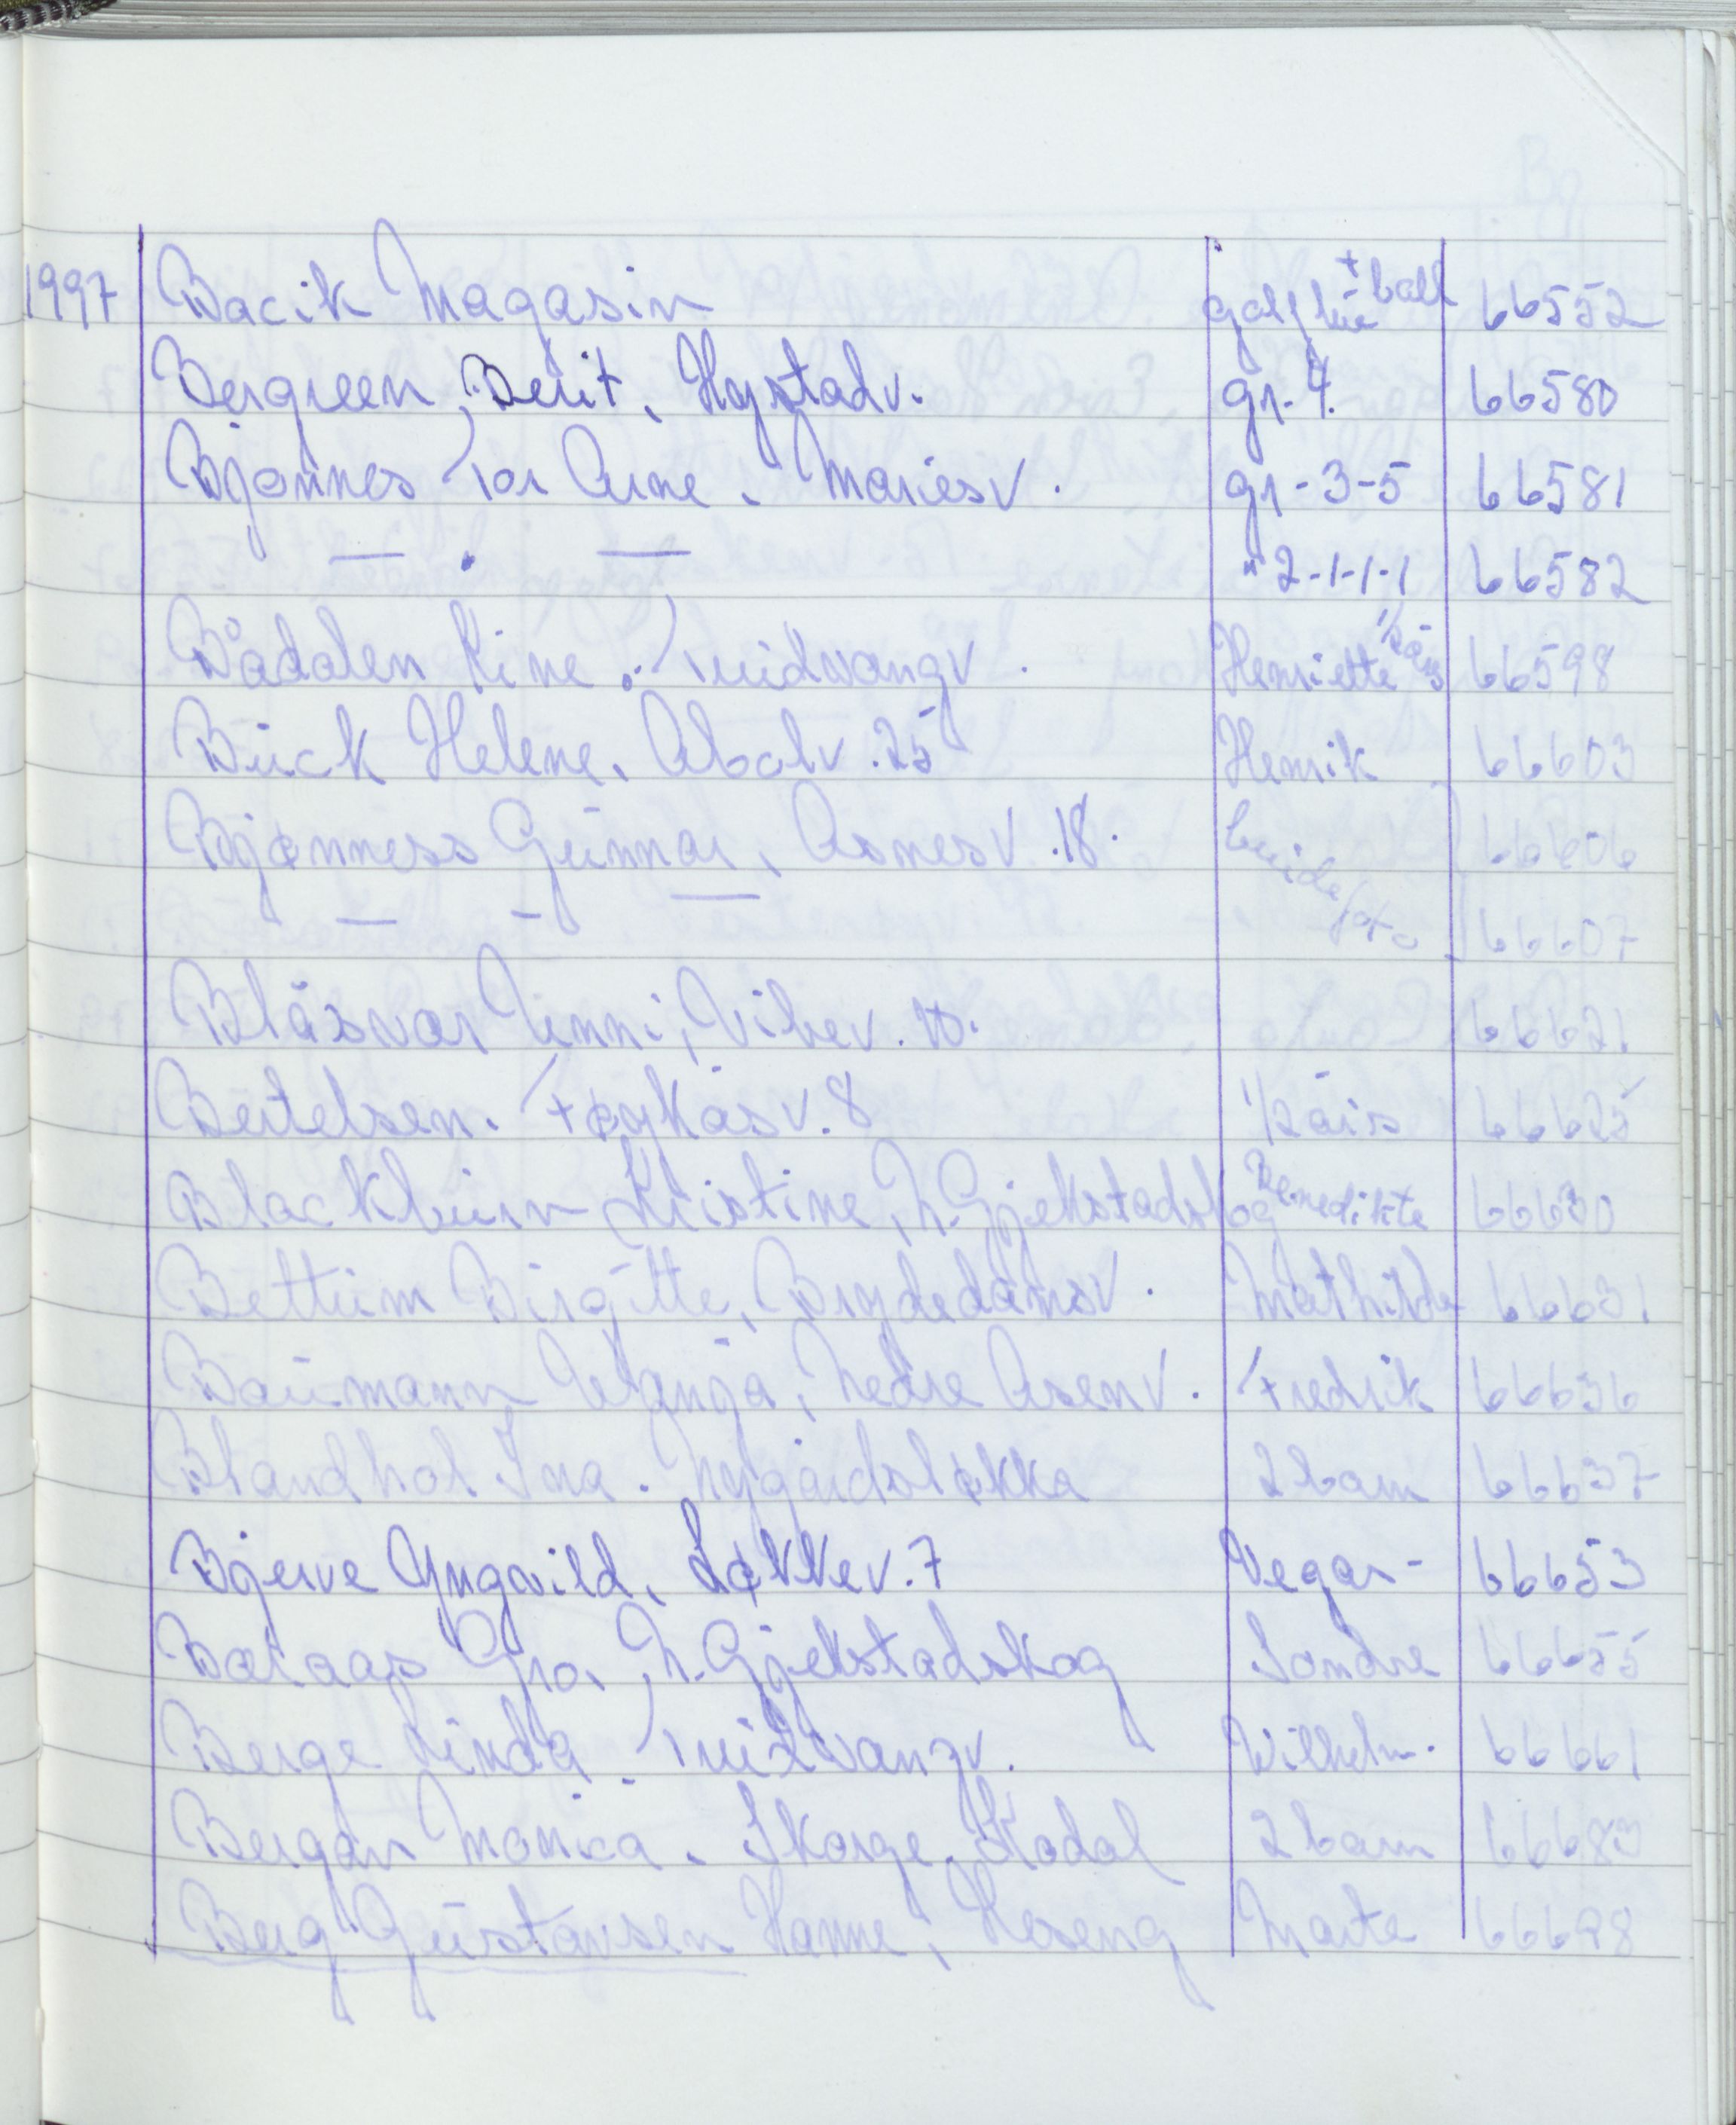 1997 Bacik Magasin golfkùe + ball 66552
Bergreen, Berit, Hystadv. gr. 4. 66580
Bjønnes Tor Arne, Mariesv. gr - 3-5 66581
— . — " 2-1-1-1 66582
Bådalen Line, Enidvangv. Henriette 1/2 års 66598
Buck Helene, Abolv. 25 Henrik 66603
Bjønness Gunnar, Asnesv. 18. brudefoto 66606
— - — 66607
Blåsvær Unni, Vibev. 10. 66621
Bertelsen. Frøykåsv. 8 1/2 års 66625
Blackburn Kristine, N. Gjekstadskog Benedikte 66630
Bettum Birgitte, Brydedamsv. Mathilde 66631
Baumann, Nedre Åsenv. Fredrik 66636
Blandhol Ina. Nygårdsløkka 2 barn 66637
Bjerve Yngvild, Løkkev. 7 Vegar - 66653
Bataas Gro, N. Gjekstadskog Sondre 66655
Berge Linda. Enidvangv. Vilhelm. 66661
Bergan Monica. Skorge, Kodal 2 barn 66683
Berg Gustavsen Hanne, Heseng Marte 66698